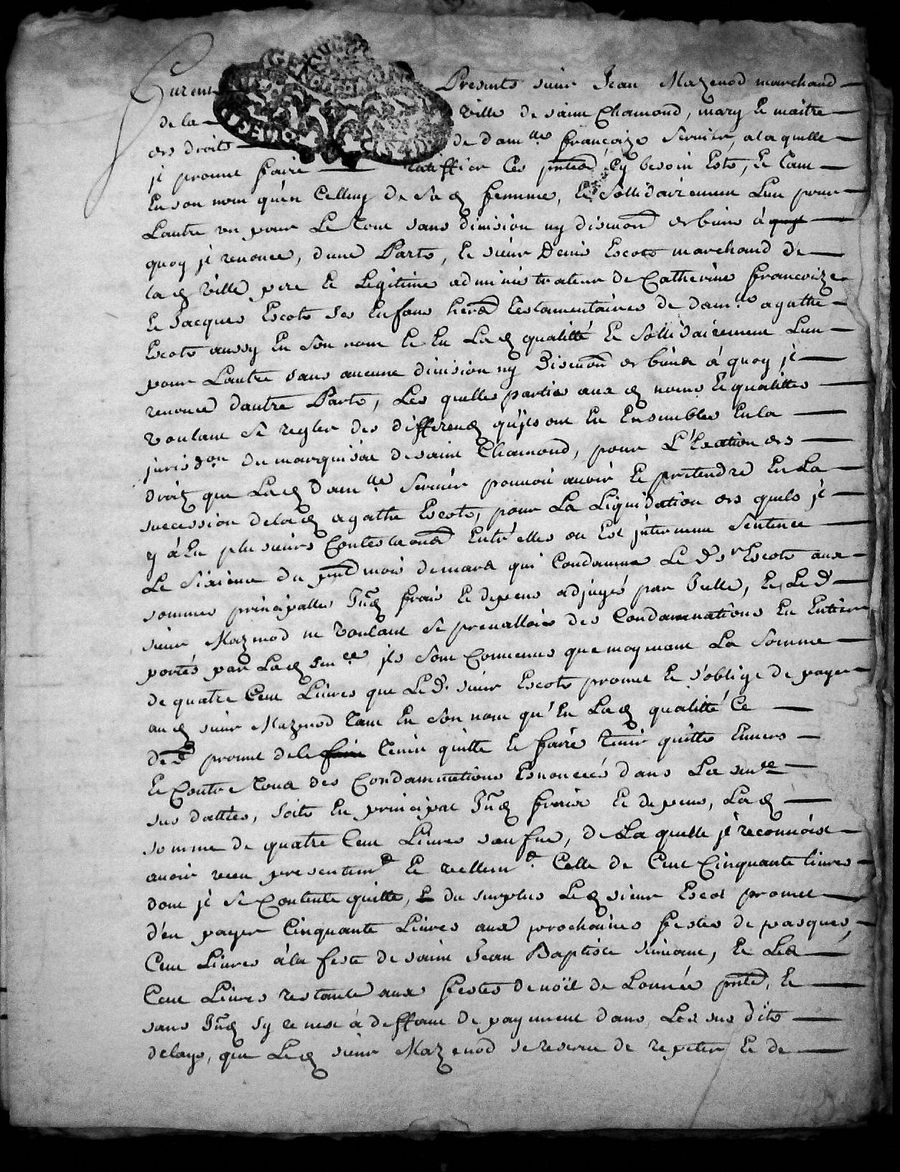 Furent Presents sieur Jean Mazenod marchand
de la ville de saint Chamond, mary et maitre
des droits de dam.lle francoize Servier, a laquelle
je promet faire ratiffier ces pntes sy besoin est, et tant
En son nom qu'en Celluy de sad femme, et sollidairement Lun pour
Lautre un pour Le tout sans division ny discuon de biens à
quoy je renonce, d'une Parte, Et sieur Denis Escots marchand de
lad ville pere et Légitime administrateur de Catherine francoize
Et Jacques Escots ses Enfans herers testamentaires de dam.lle agathe
Escots aussy En son nom Et En Lad qualitté Et sollidairement Lun
pour Lautre sans aucune division ny Discuon de biens à quoy je
renonce d'autre Parte, Les quelles parties aux d noms Et qualittés
voulant se regler des différends qu'ils ont Eu Ensembles En la
jurisdon du marquisat de saint Chamond, pour L'Exation des
droits que Lad dam.lle Servier pouvoit avoir Et prétendre En La
succession de lad agathe Escots, pour La Liquidation des quels je
y à Eu plusieurs Contestaons Entr'elles ou Est jntervenu Sentence
Le sixieme du pnt mois de mars qui Condamne Le d sr Escots aux
sommes principalles Jnts frais Et depens adjugés par Jcelle, Et Le d
sieur Mazenod ne voulant se prevalloir des Condamnations En Entier
portés par Lad sence jls sont Convenus que moyennant La somme
de quatre Cent Livres que Le d sieur Escots promet Et s'oblige de payer
aud sieur Mazenod tant En son nom qu'En Lad qualitté Ce
promet de le tenir quitte Et faire tenir quitte Envers
Et Contre tous des Condamnations Enoncées dans La sence
sus dattée, soits En principal Jnts frais Et depens, Lad
somme de quatre Cent Livres sauf ne, de La quelle je reconnoist
avoir receu presentemt Et réellemt Celle de Cent Cinquante livres
dont je se Contente quitte, Et du surplus Led sieur Escot promet
d'en payer Cinquante Livres aux prochaines festes de pasques,
Cent Livres à la feste de saint Jean Baptiste suivant, Et Les
Cent Livres restante aux festes de noël de Lannée pnte, Et
sans Jnts sy ce nest à deffaut de payement dans Les sus dits
delays, que Led sieur Mazenod se reserve de repeter Et de